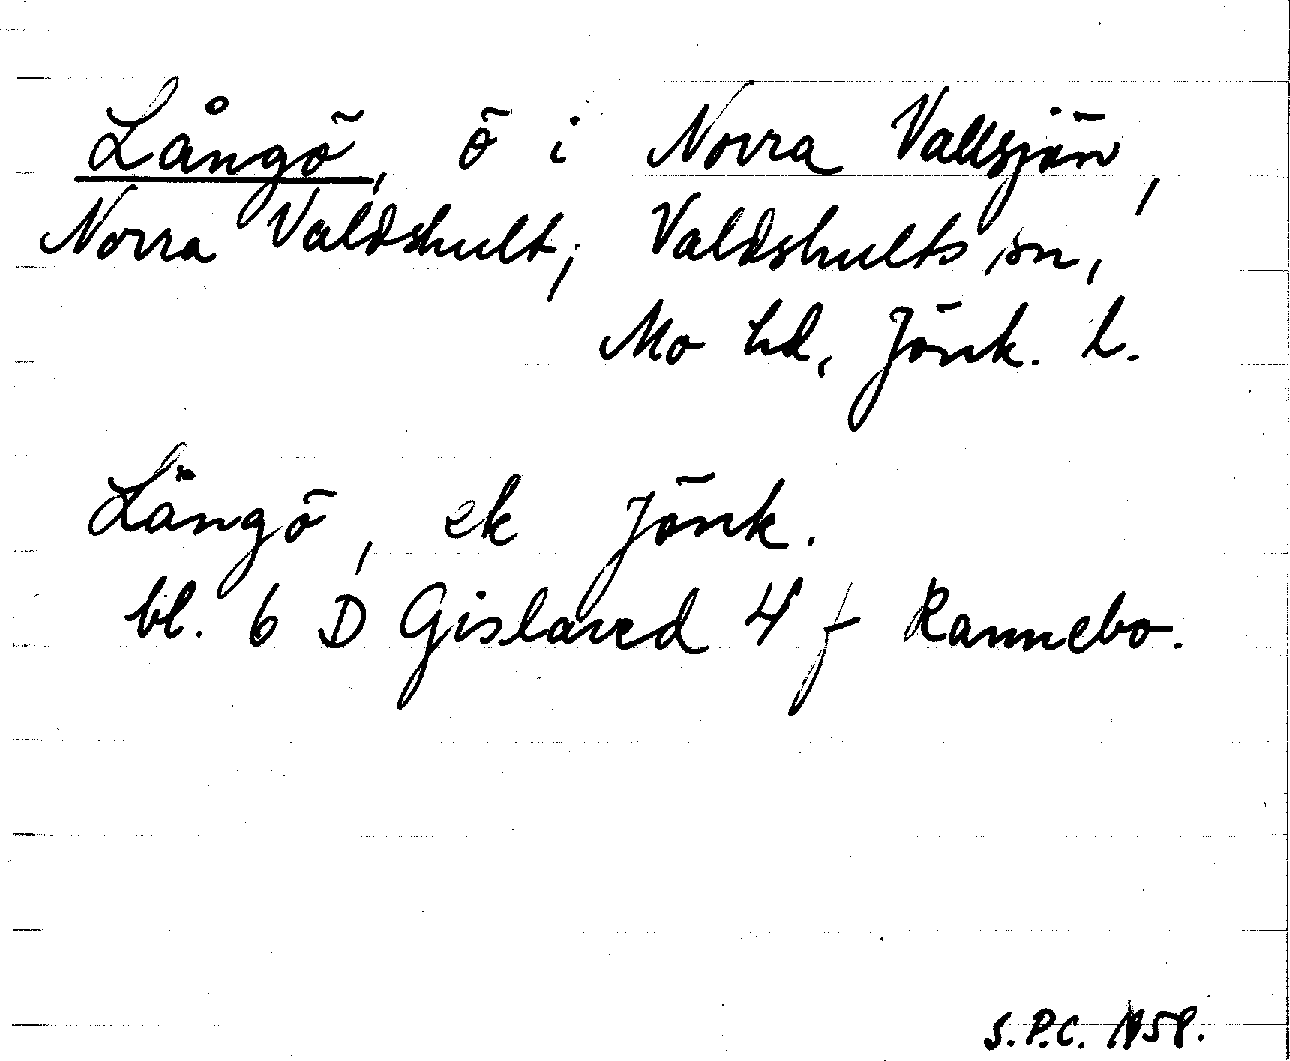 Långö, ö i Norra Vallsjön,
Norra Valdshult, Valdshults sn,
Mo hd, Jönk. l.
Långö, ek Jönk.
bl. 6 D Gislaved 4 f Rannebo.
S.P.C. 1958.